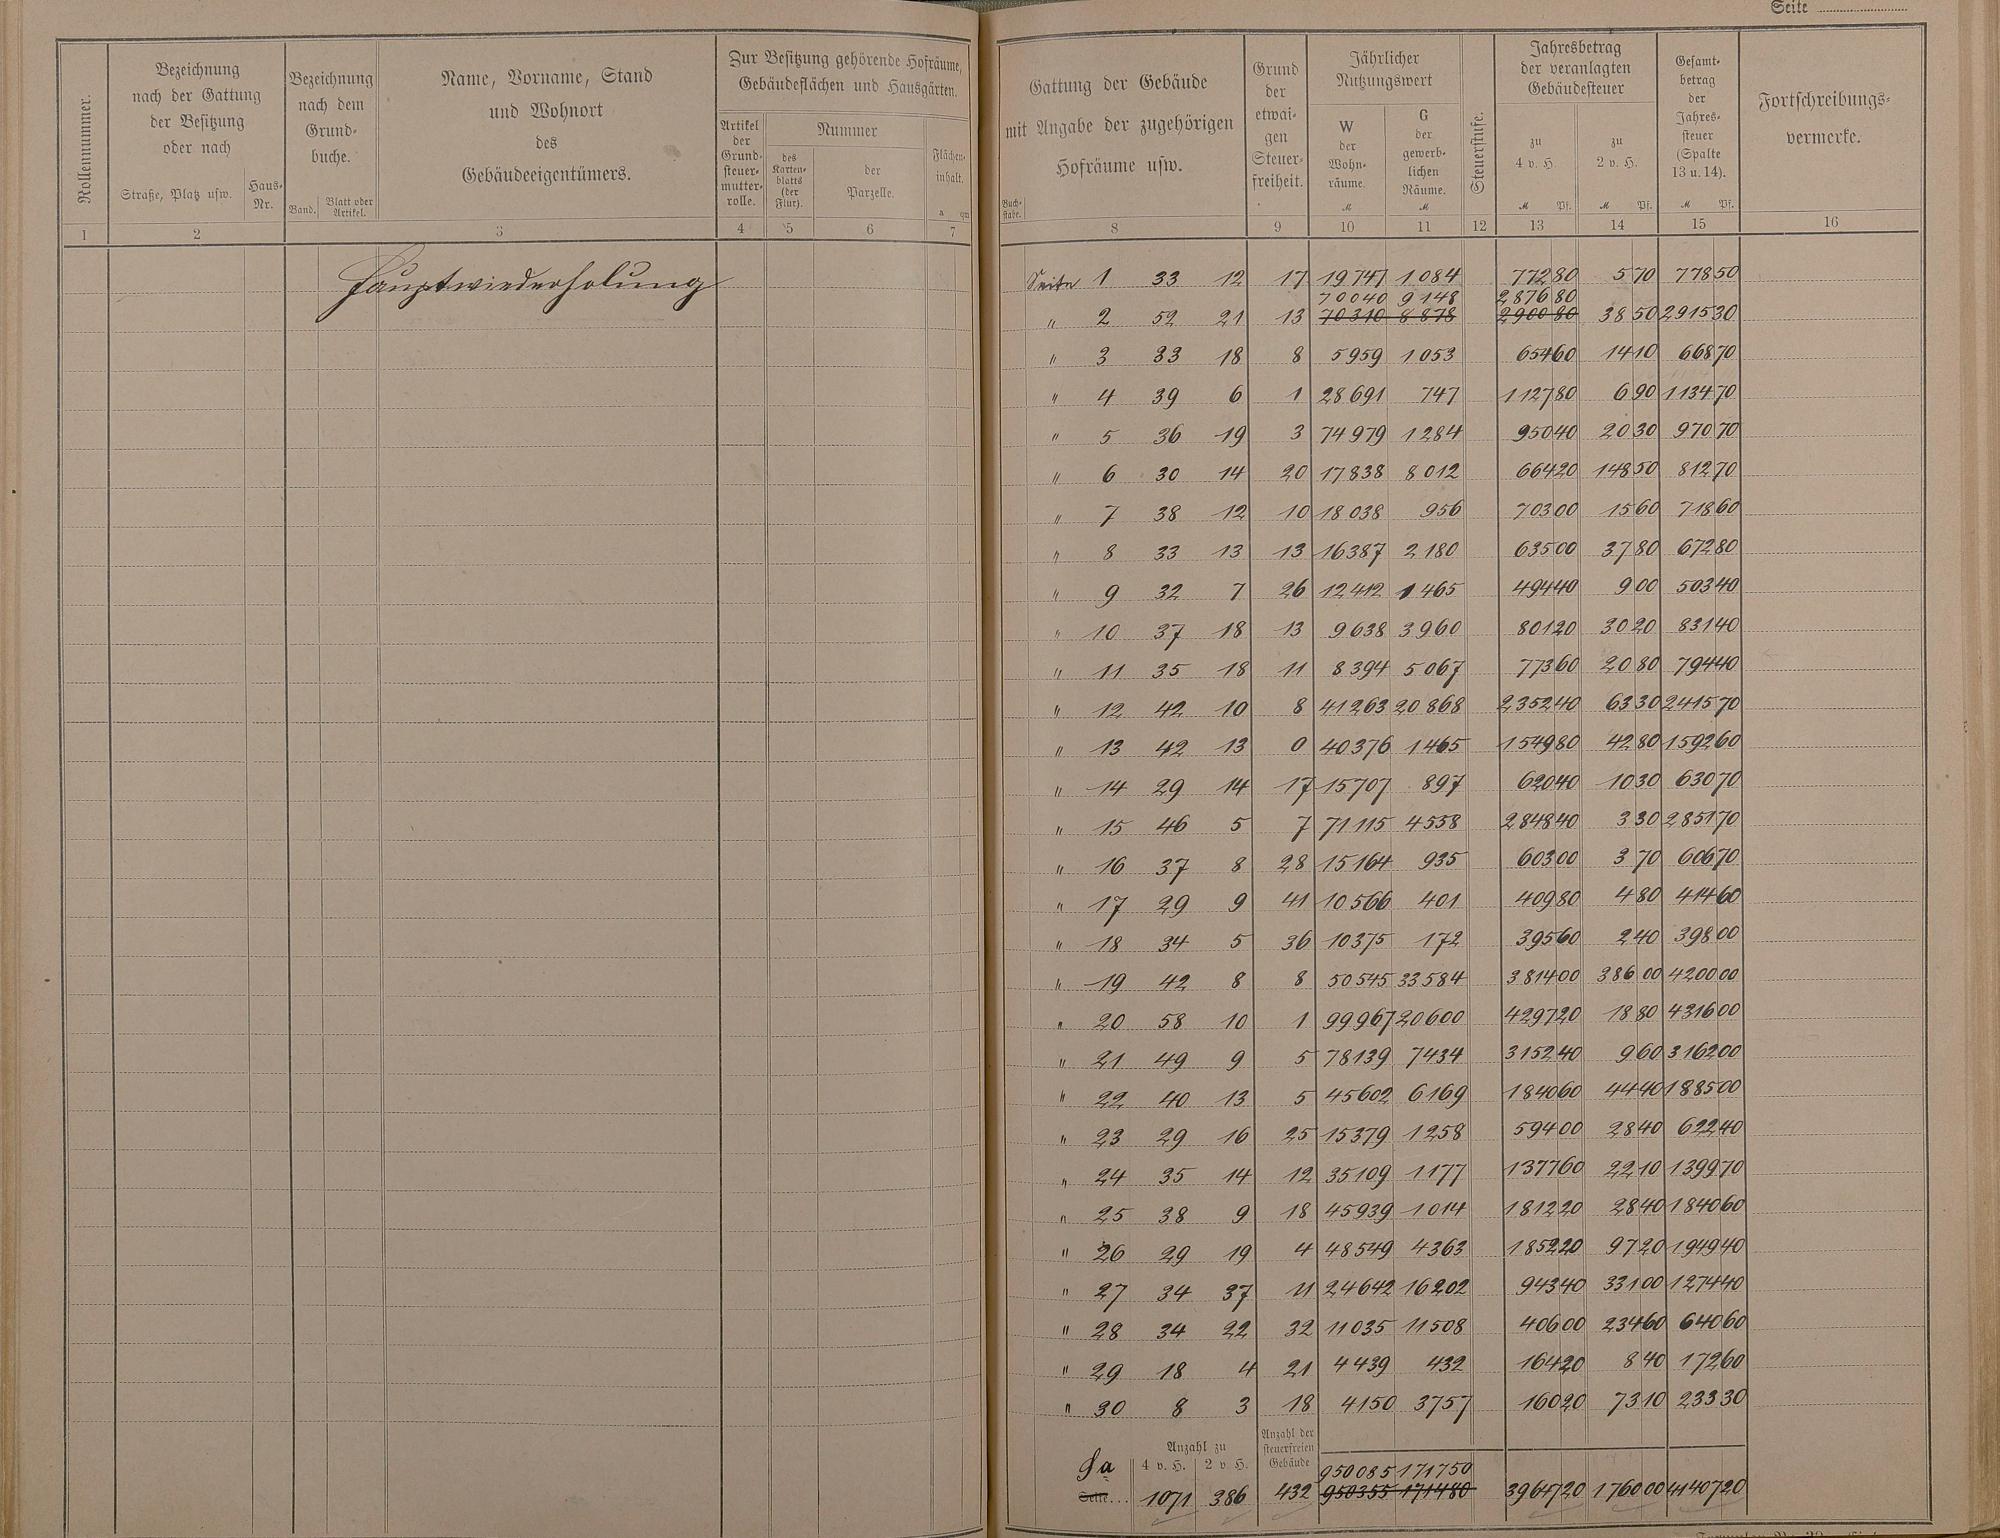 Seite
Rollennummer.
Bezeichnung
nach der Gattung
der Besitzung
oder nach
Straße, Platz usw.
Haus-
Nr.
Bezeichnung
nach dem
Grund-
buche.
Band.
Blatt oder
Artikel.
Name, Vorname, Stand
und Wohnort
des
Gebäudeeigentümers.
Zur Besitzung gehörende Hofräume,
Gebäudeflächen und Hausgärten.
Artikel
der
Grund-
steuer-
mutter-
rolle.
Nummer
des
Karten-
blatts
(der
Flur).
der
Parzelle.
Flächen-
inhalt.
a qm
1 2 3 4 5 6 7
Hauptwiederholung
Gattung der Gebäude
mit Angabe der zugehörigen
Hofräume usw.
Buch-
stabe.
Grund
der
etwai-
gen
Steuer-
freiheit.
Jährlicher
Nutzungswert
W
der
Wohn-
räume.
M
G
der
gewerb-
lichen
Räume.
M
Steuerstufe.
Jahresbetrag
der veranlagten
Gebäudesteuer
zu
4 v. H.
M Pf.
zu
2 v. H.
M Pf.
Gesamt-
betrag
der
Jahres-
steuer
(Spalte
13 u. 14).
M Pf.
Fortschreibungs-
vermerke.
8 9 10 11 12 13 14 15 16
Seite 1 33 12 17 19747 1084 772 80 5 70 778 50
70040 9148 2876 80
" 2 52 21 13 70310 8878 2900 80 38 50 2915 30
" 3 33 18 8 5959 1053 654 60 14 10 668 70
" 4 39 6 1 28691 747 1127 80 6 90 1134 70
" 5 36 19 3 74979 1284 950 40 20 30 970 70
" 6 30 14 20 17838 8012 664 20 148 50 812 70
" 7 38 12 10 18038 956 703 00 15 60 718 60
" 8 33 13 13 16387 2180 635 00 37 80 672 80
" 9 32 7 26 12412 1465 494 40 9 00 503 40
" 10 37 18 13 9638 3960 801 20 30 20 831 40
" 11 35 18 11 8394 5067 773 60 20 80 794 40
" 12 42 10 8 41263 20868 2352 40 63 30 2415 70
" 13 42 13 0 40376 1465 1549 80 42 80 1592 60
" 14 29 14 17 15707 897 620 40 10 30 630 70
" 15 46 5 7 71115 4558 2848 40 3 30 2851 70
" 16 37 8 28 15164 935 603 00 3 70 606 70
" 17 29 9 41 10566 401 409 80 4 80 414 60
" 18 34 5 36 10375 172 395 60 2 40 398 00
" 19 42 8 8 50545 33584 3814 00 386 00 4200 00
" 20 58 10 1 99967 20600 4297 20 18 80 4316 00
" 21 49 9 5 78139 7434 3152 40 9 60 3162 00
" 22 40 13 5 45602 6169 1840 60 44 40 1885 00
" 23 29 16 25 15379 1258 594 00 28 40 622 40
" 24 35 14 12 35109 1177 1377 60 22 10 1399 70
" 25 38 9 18 45939 1014 1812 20 28 40 1840 60
" 26 29 19 4 48549 4363 1852 20 97 20 1949 40
" 27 34 37 11 24642 16202 943 40 331 00 1274 40
" 28 34 22 32 11035 11508 406 00 234 60 640 60
" 29 18 4 21 4439 432 164 20 8 40 172 60
" 30 8 3 18 4150 3757 160 20 73 10 233 30
Anzahl zu
4 v. H. 2 v H.
Anzahl der
steuerfreien
Gebäude
Sa 950085 171750
Seite... 1071 386 432 950355 171480 39647 20 1760 00 41407 20